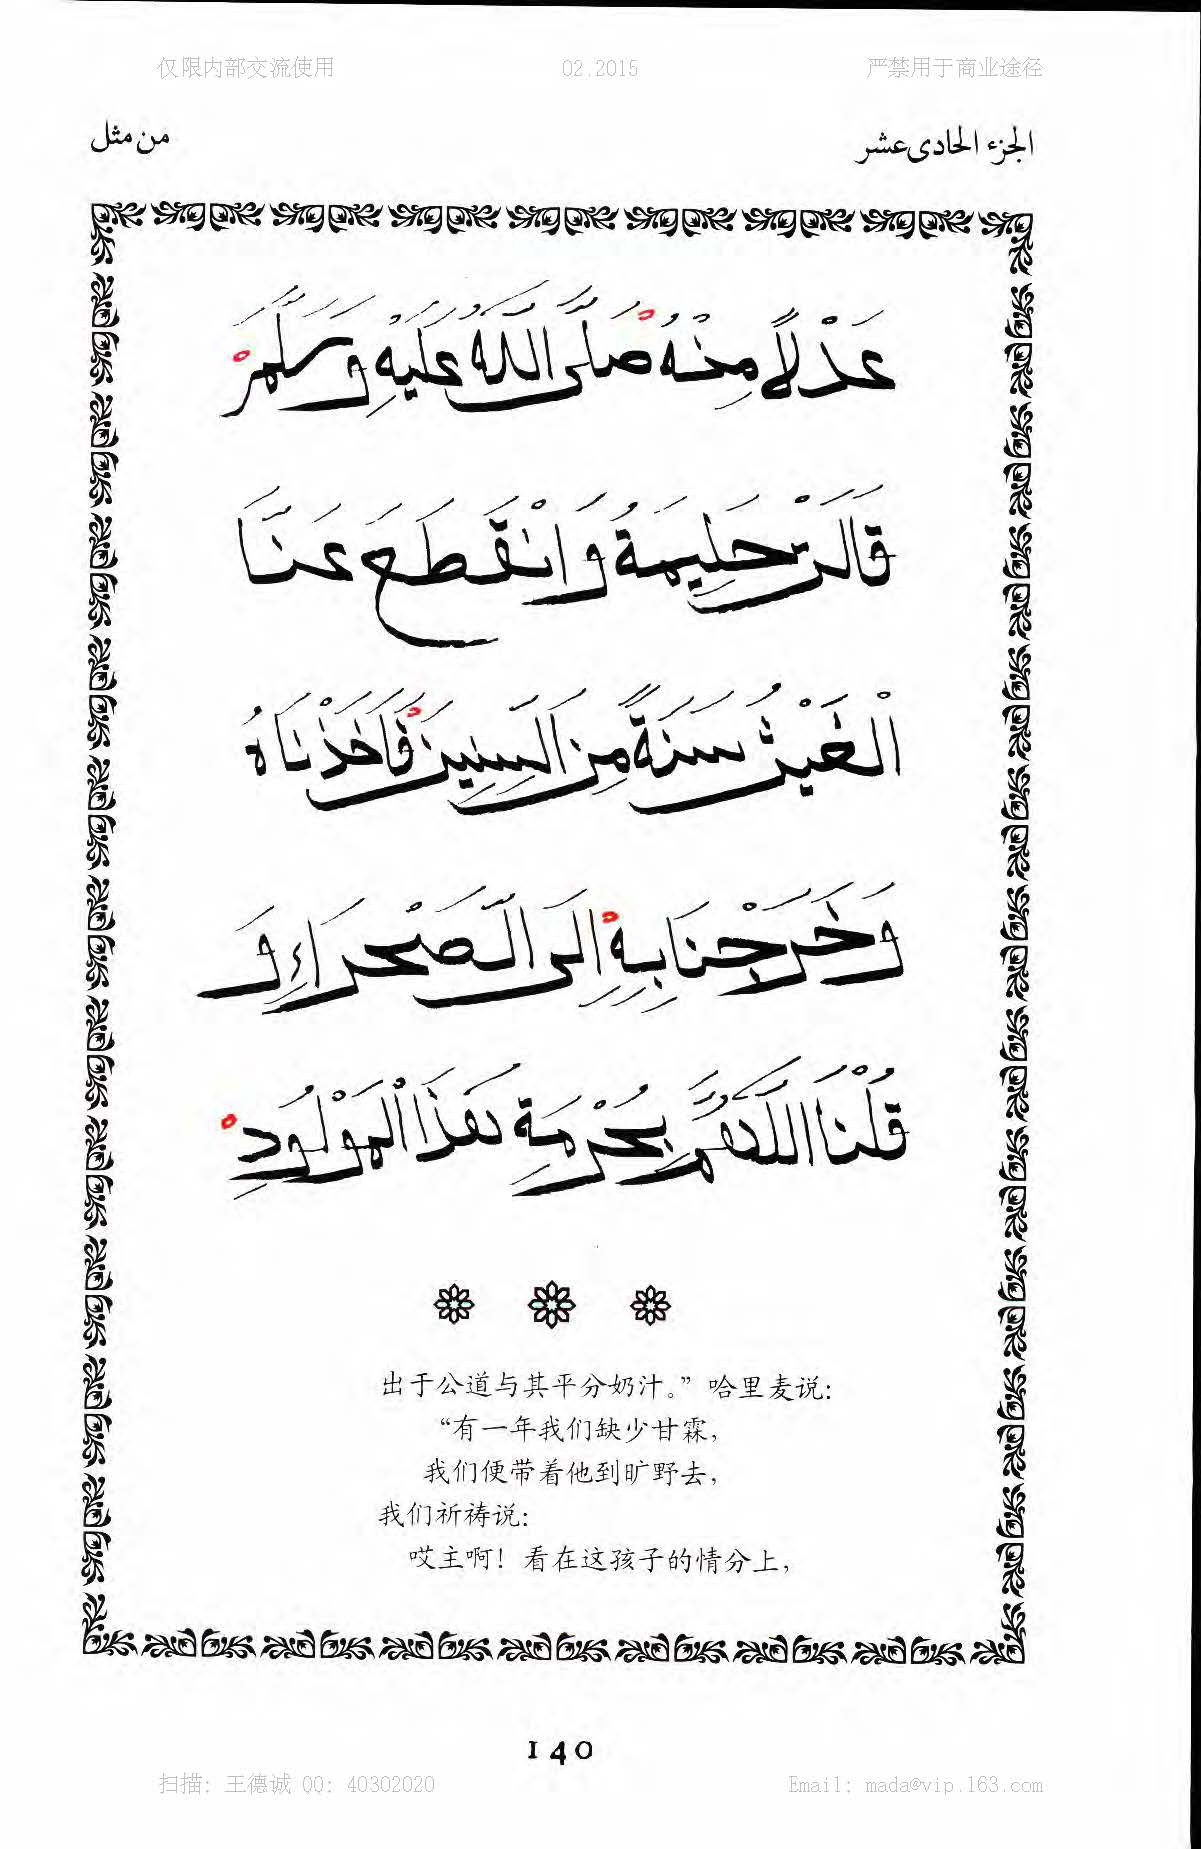 仅限内部交流使用 02.2015 严禁用于商业途径
الجزء الحادى عشر من مثل
عَدْلًا مِنْهُ صَلَّى اللَّهُ عَلَيْهِ وَسَلَّمَ
قَالَتْ حَلِيمَةُ وَانْقَطَعَ عَنَّا
الْغَيْثُ سَنَةً مِنَ السِّنِينَ فَاَخَذْنَاهُ
وَخَرَجْنَا بِهِ اِلَى الصَّحْرَاءِ وَ
قُلْنَا اللَّهُمَّ بِحُرْمَةِ هَذَا الْمَوْلُودِ
出于公道与其平分奶汁。”哈里麦说：
“有一年我们缺少甘霖，
我们便带着他到旷野去，
我们祈祷说：
哎主啊！看在这孩子的情分上，
140
扫描: 王德诚 QQ: 40302020 Email: mada@vip.163.com